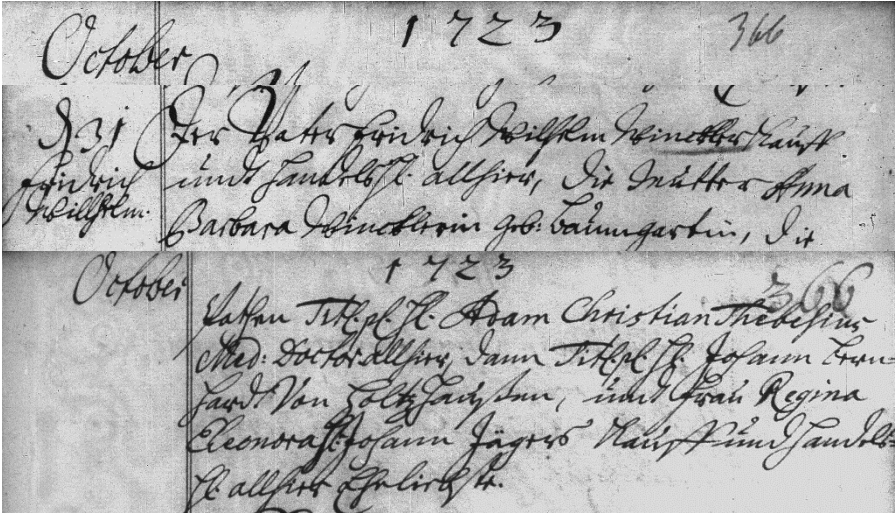 October 1723 366
d 31 Der Vater Fridrich Wilhelm Winckler Kauff
Fridrich undt Handelsh: allhier, die Mutter Anna
Willhelm. Barbara Wincklerin geb: Baumgartin, die
October 1723 366
Pathen Titl. pl. H: Adam Christian Thebesius
Med: Doctor allhier, dann Titl. pl. H: Johann Bern=
hardt Von Holtzhaußen, undt Frau Regina
Eleonora H: Johann Jägers Kauff- und Handels=
H: allhier Eheliebste.